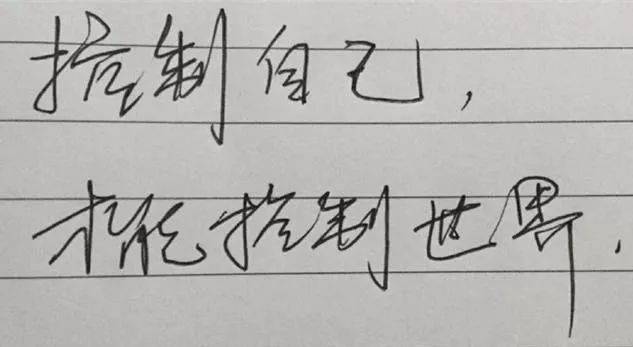 控制自己，
才能控制世界.